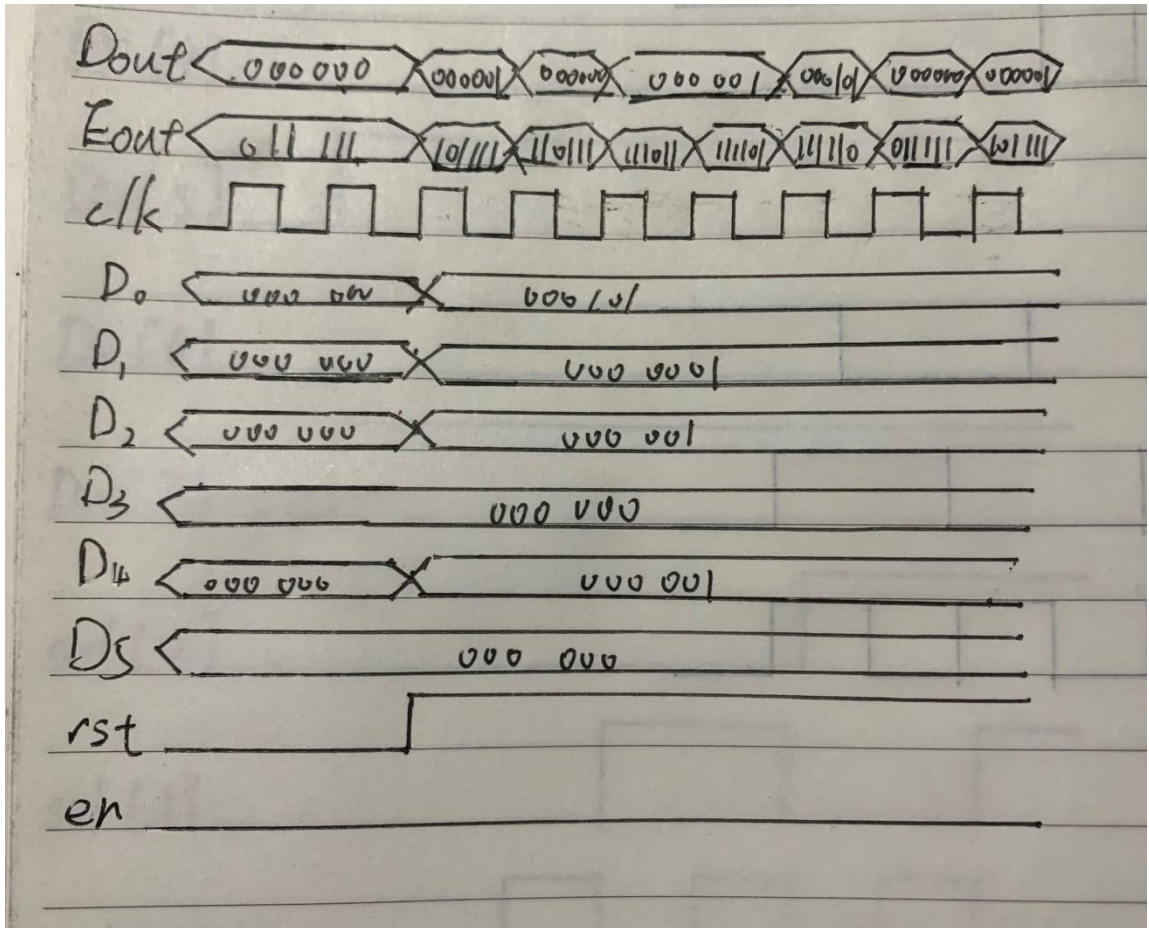 Dout 000000 000001 000000 000 001 000000
Eout 011 111 101111 110111 111011 111101 111110 011111 101111
clk
D0 000 000 000101
D1 000 000 000 0001
D2 000 000 000 001
D3 000 000
D4 000 000 000 001
D5 000 000
rst
en